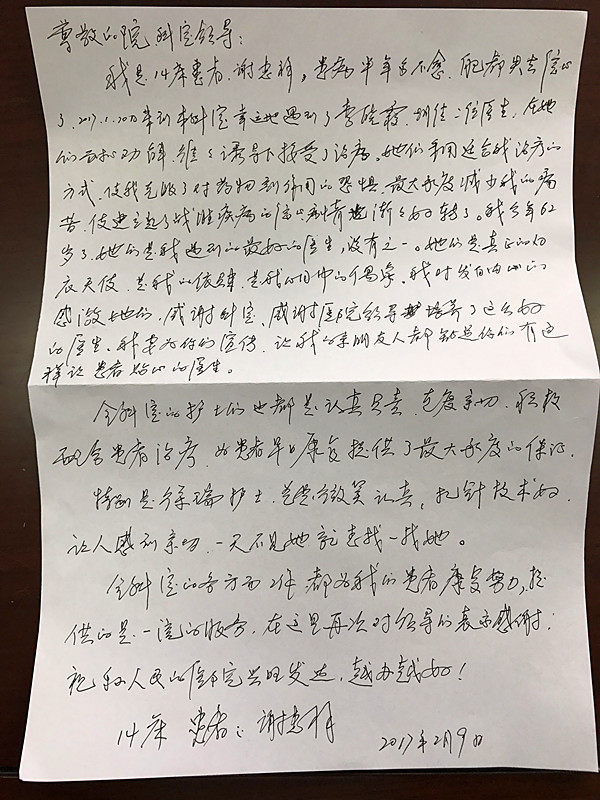 尊敬的院、科室领导:
我是14床患者,谢惠祥,患病半年多不愈,
了.2017.1.20来到本科室幸运地遇到了李晓霞、二位医生,在她
们的劝解、循循诱导下接受了治疗。她们采用适合我治疗的
方式,使我克服了对药物副作用的恐惧,最大程度减少我的病
苦,使建立起了战胜疾病的信心病情渐渐好转了。我今年62
岁了,她们是我遇到的最好的医生,没有之一。她们是真正的白
衣天使,是我的依靠,是我心目中的偶象。我时发自内心的
感激她们,感谢科室、感谢医院领导培养了这么好
的医生,我要为你们宣传,让我的亲朋友人都知道你们有这
样让患者贴心的医生。
全科室的护士们也都是认真负责,态度亲切,积极
配合患者治疗,为患者早日康复提供了最大程度的保证.
特别是护士,总是微笑认真,扎针技术好.
让人感到亲切,一天不见她就想找一找她。
全科室的各方面工作都为我们患者康复努力,提
供的是一流的服务,在这里再次对领导们表示感谢;
祝利人民的医院兴旺发达,越办越好!
14床 患者:谢惠祥
2017年2月9日